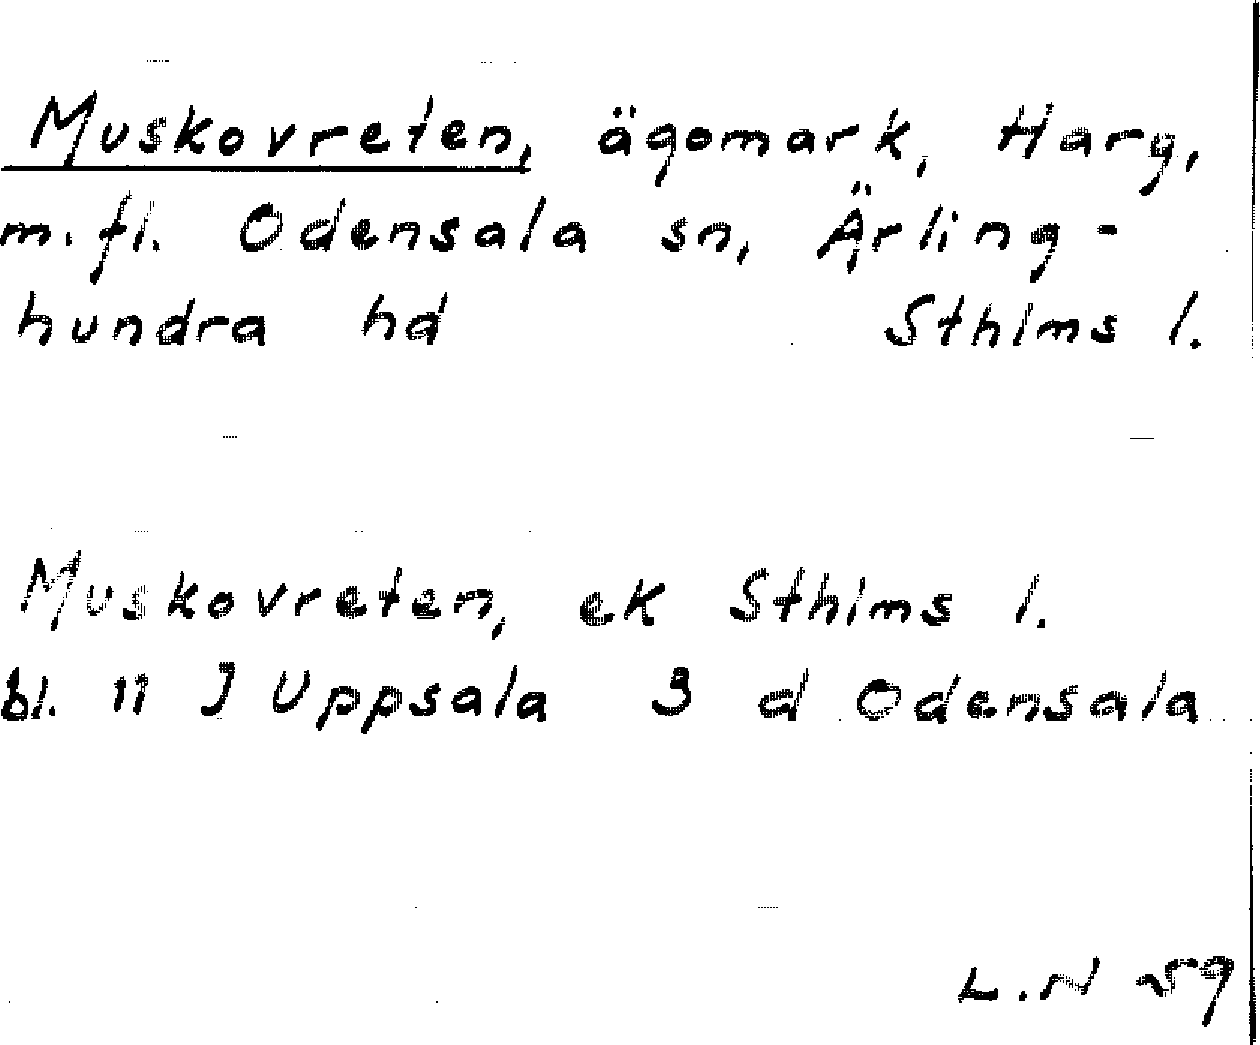 Muskovreten, ägomark, Harg,
m.fl. Odensala sn, Ärling-
hundra hd Sthlms l.
Muskovreten, ek Sthlms l.
bl. 11 J Uppsala 3 d Odensala
L.N 59